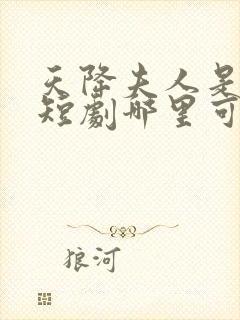 天降夫人是
短劇哪里可
狼河